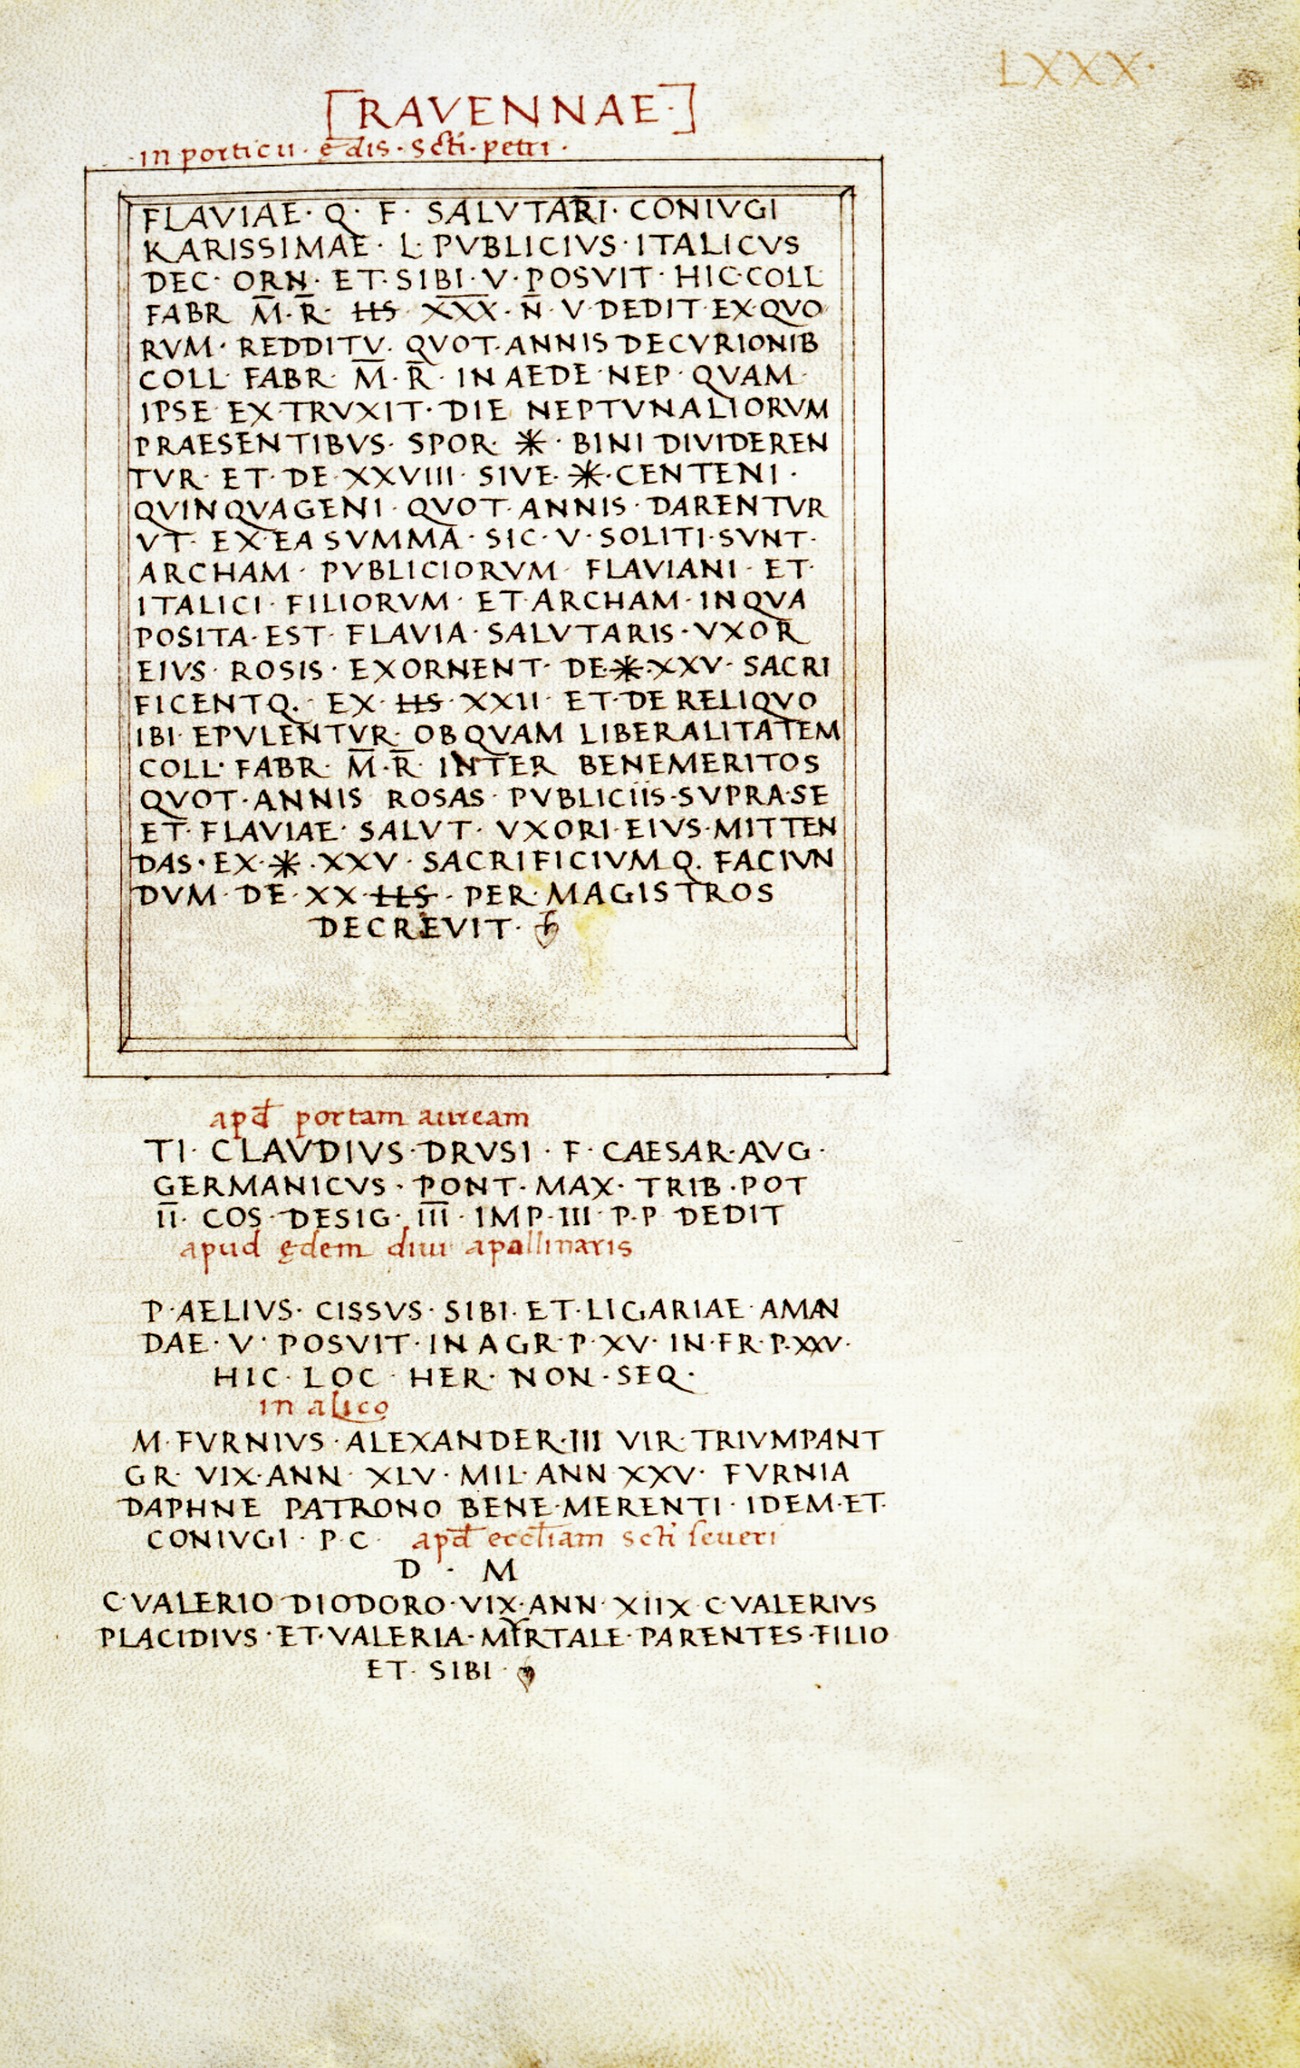 LXXX·
[RAVENNAE·]
·in porticu· ędis·scti·petri·
FLAVIAE·Q·F·SALVTARI·CONIVGI
KARISSIMAE·L·PVBLICIVS·ITALICVS
DEC·ORN·ET·SIBI·V·POSVIT·HIC·COLL
FABR M̅·R̅· HS X̅X̅X̅·N̅·V·DEDIT·EX·QVO
RVM·REDDITV·QVOT·ANNIS DECVRIONIB
COLL·FABR·M̅·R̅·IN AEDE·NEP·QVAM·
IPSE EX·TRVXIT·DIE NEPTVNALIORVM
PRAESENTIBVS·SPOR·✳·BINI DIVIDEREN
TVR·ET·DE·XXVIII·SIVE·✳·CENTENI·
QVINQVAGENI·QVOT·ANNIS·DARENTVR
VT·EX·EA SVMMA·SIC·V·SOLITI·SVNT·
ARCHAM·PVBLICIORVM·FLAVIANI·ET·
ITALICI·FILIORVM·ET·ARCHAM·IN QVA
POSITA·EST·FLAVIA·SALVTARIS·VXOR
EIVS·ROSIS·EXORNENT·DE·✳·XXV·SACRI
FICENTQ·EX·HS·XXII·ET·DE RELIQVO
IBI·EPVLENTVR·OB QVAM LIBERALITATEM
COLL·FABR·M̅·R̅ INTER BENEMERITOS
QVOT·ANNIS ROSAS·PVBLICIIS·SVPRA·SE
ET·FLAVIAE·SALVT·VXORI·EIVS·MITTEN
DAS·EX·✳·XXV·SACRIFICIVM Q·FACIVN
DVM·DE·XX·HS·PER·MAGISTROS
DECREVIT·❦
apd̄ portam auream
TI·CLAVDIVS·DRVSI·F·CAESAR·AVG·
GERMANICVS·PONT·MAX·TRIB·POT
I̅I̅·COS·DESIG·I̅I̅I̅·IMP·III·P·P DEDIT
apud ędem diui apallinaris
P·AELIVS·CISSVS·SIBI·ET·LIGARIAE·AMAN
DAE·V·POSVIT·IN AGR·P·XV·IN·FR·P·XXV·
HIC·LOC·HER·NON·SEQ·
in alico
M·FVRNIVS·ALEXANDER·III VIR·TRIVMPANT
GR·VIX·ANN·XLV·MIL·ANN XXV·FVRNIA
DAPHNE PATRONO BENE·MERENTI·IDEM·ET·
CONIVGI·P·C· apd̄ eccl̄iam scti seueri
D · M
C·VALERIO DIODORO·VIX·ANN·XIIX C·VALERIVS
PLACIDIVS·ET·VALERIA·MYRTALE·PARENTES·FILIO
ET·SIBI·❦